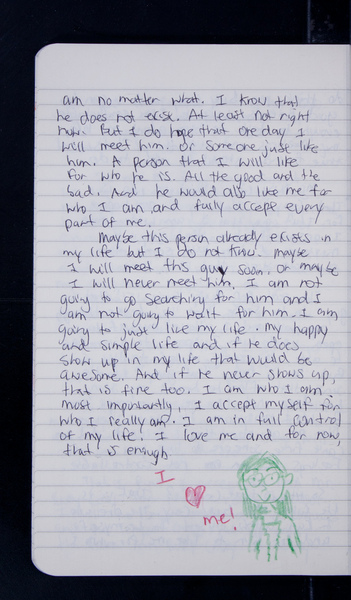 am no matter what. I know that
he does not exist. At least not right
now. But I do hope that one day I
will meet him. or someone just like
him. A person that I will like
for who he is. All the good and the
bad. And he would also like me for
who I am and fully accept every
part of me.
Maybe this person already exists in
my life but I do not know. maybe
I will meet this guy soon. or maybe
I will never meet him. I am not
going to go searching for him and I
am not going to wait for him. I am
going to just live my life. my happy
and simple life and if he does
show up in my life that would be
awesome. And if he never shows up,
that is fine too. I am who I am.
most importantly, I accept myself for
who I really am. I am in full control
of my life. I love me and for now,
that is enough.
I
me!